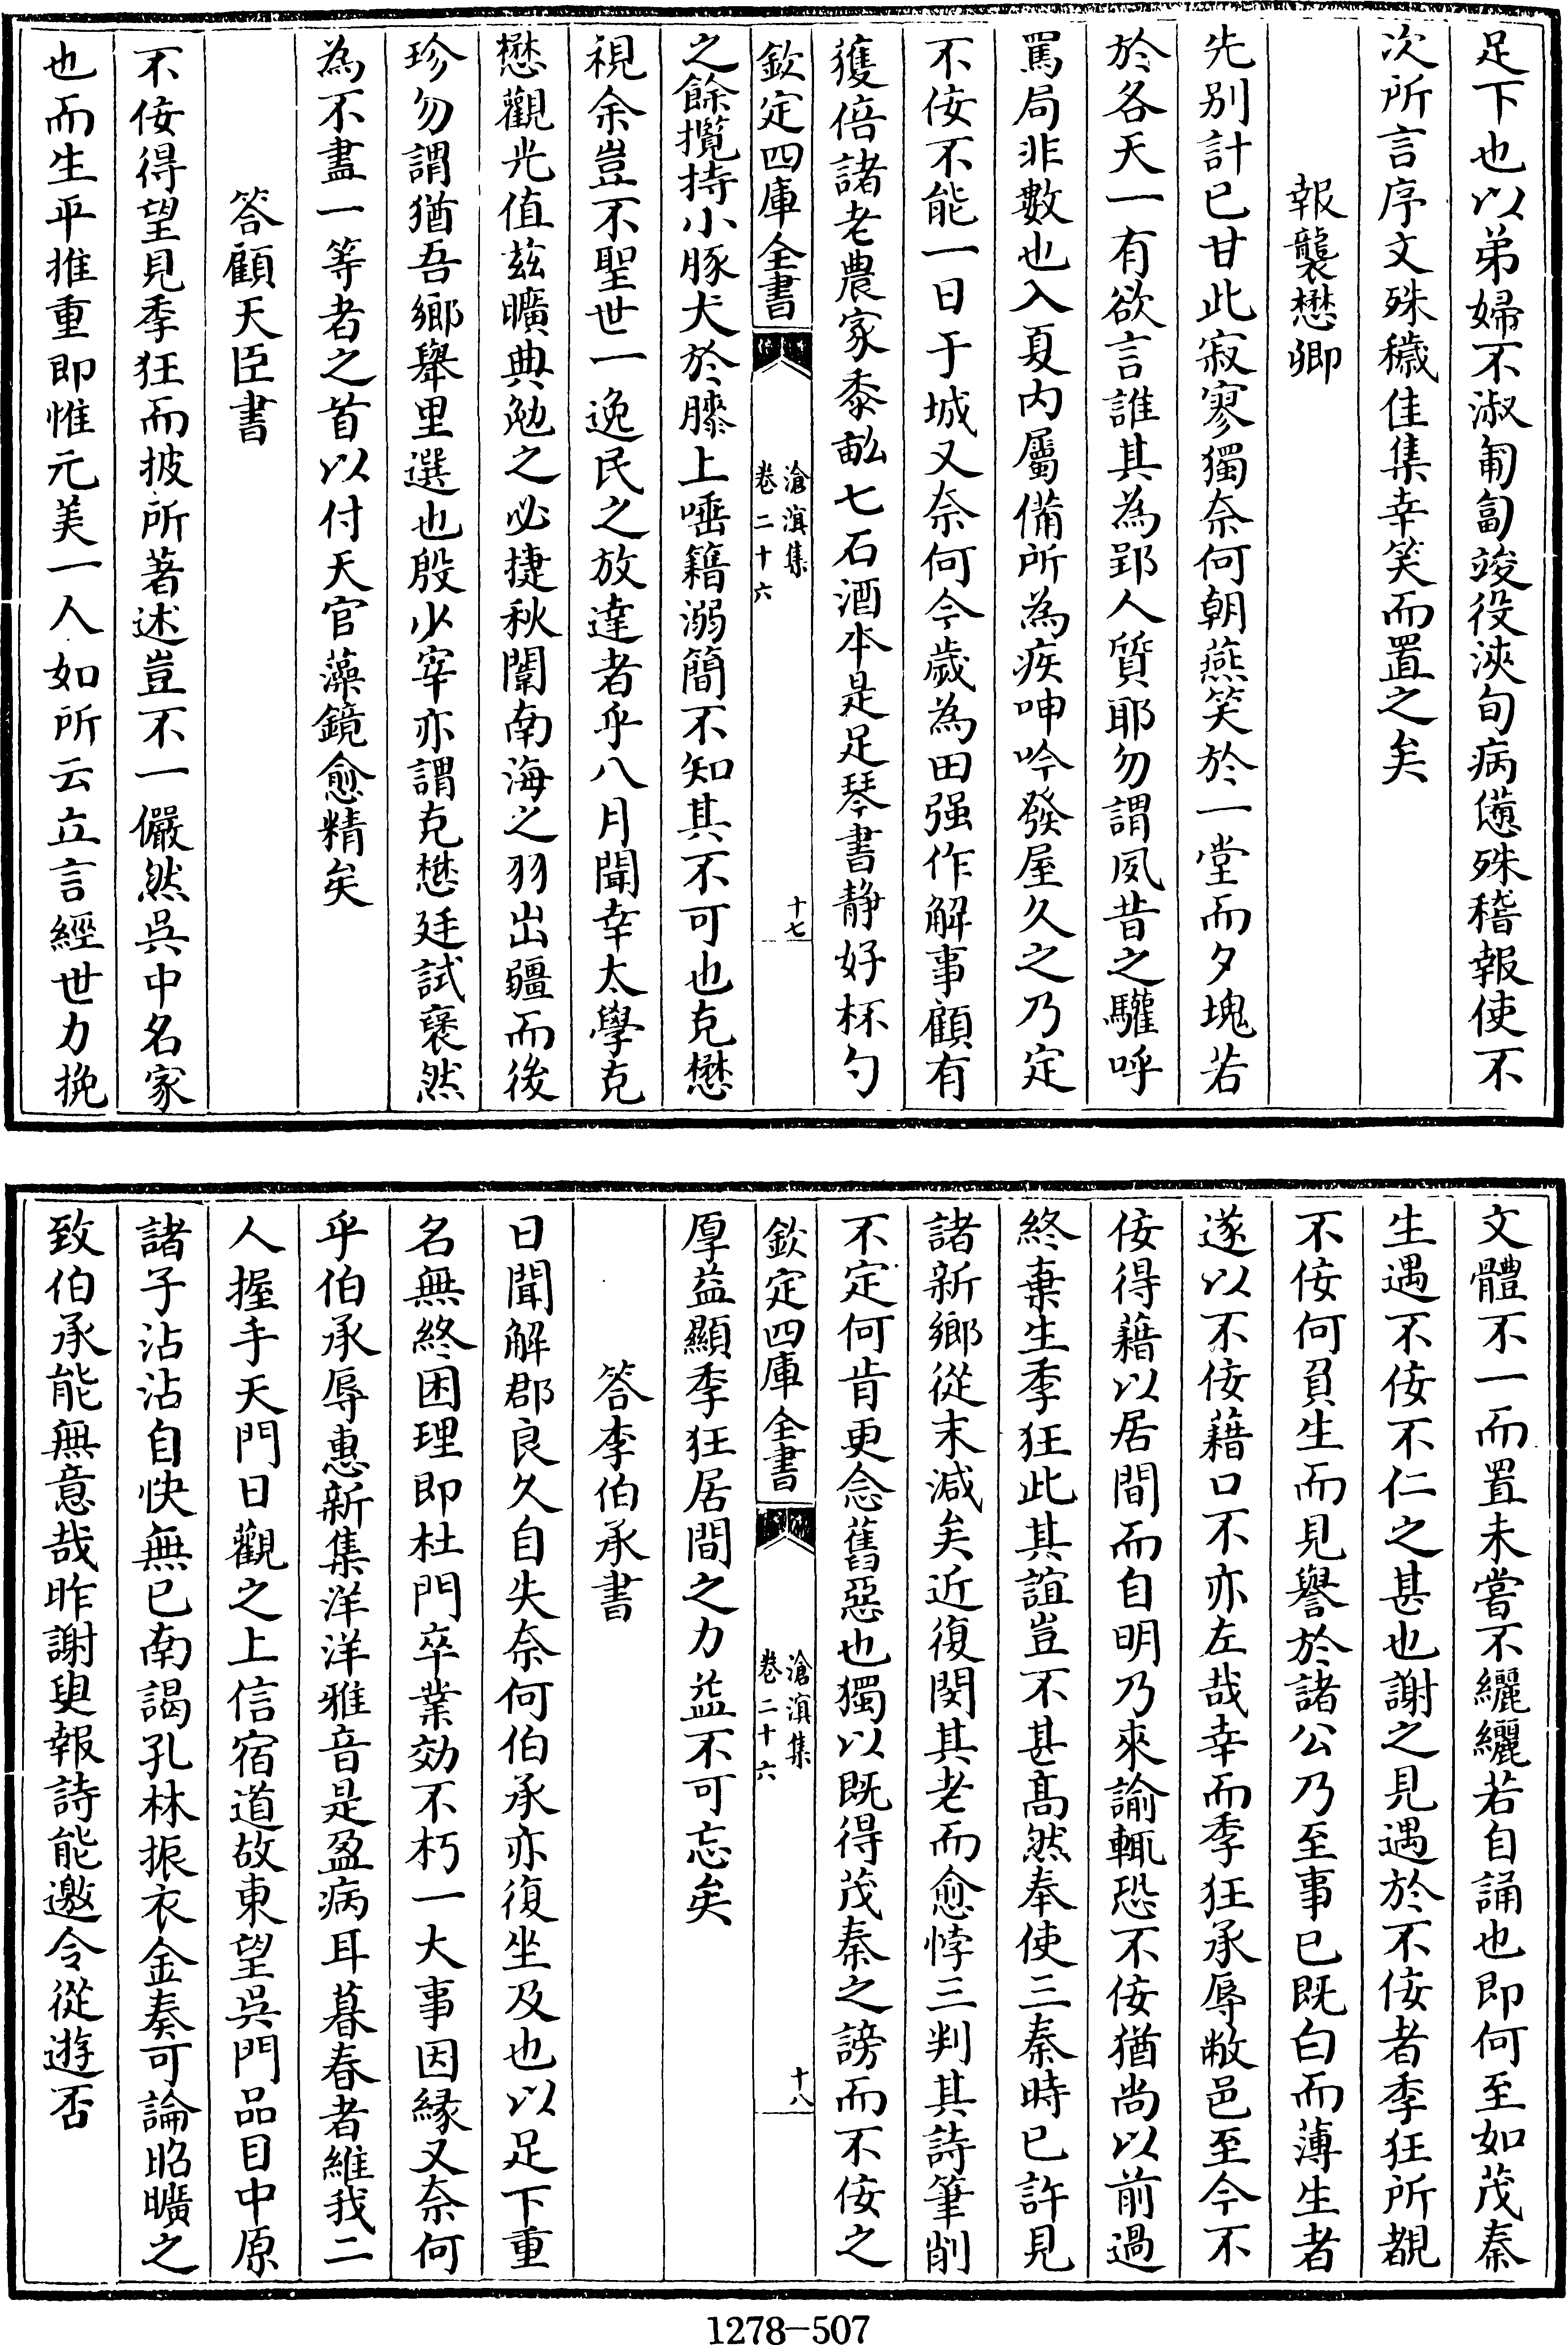 足下也以弟婦不淑匍匐竣役浹旬病憊殊稽報使不
次所言序文殊穢佳集幸笑而置之矣
報龔懋卿
先别計已甘此寂寥獨奈何朝燕笑於一堂而夕塊若
於各天一有欲言誰其為郢人質耶勿謂夙昔之驩呼
罵局非數也入夏内屬備所為疾呻吟發屋久之乃定
不佞不能一日于城又奈何今歲為田强作解事顧有
獲倍諸老農家黍畝七石酒本是足琴書静好杯勺
欽定四庫全書
滄溟集
卷二十六
十七
之餘攬持小豚犬於膝上唾籍溺簡不知其不可也克懋
視余豈不聖世一逸民之放達者乎八月聞幸太學克
懋觀光值兹曠典勉之必捷秋闈南海之羽出疆而後
珍勿謂猶吾鄉舉里選也殷少宰亦謂克懋廷試裦然
為不盡一等者之首以付天官藻鏡愈精矣
答顧天臣書
不佞得望見季狂而披所著述豈不一儼然吳中名家
也而生平推重即惟元美一人如所云立言經世力挽
文體不一而置未嘗不纚纚若自誦也即何至如茂秦
生遇不佞不仁之甚也謝之見遇於不佞者季狂所覩
不佞何負生而見譽於諸公乃至事已既白而薄生者
遂以不佞藉口不亦左哉幸而季狂承辱敝邑至今不
佞得藉以居間而自明乃來諭輒恐不佞猶尚以前過
終棄生季狂此其誼豈不甚髙然奉使三秦時已許見
諸新鄉從末減矣近復閔其老而愈悖三判其詩筆削
不定何肯更念舊惡也獨以既得茂秦之謗而不佞之
欽定四庫全書
滄溟集
卷二十六
十八
厚益顯季狂居間之力益不可忘矣
答李伯承書
日聞解郡良久自失奈何伯承亦復坐及也以足下重
名無終困理即杜門卒業効不朽一大事因緣又奈何
乎伯承辱惠新集洋洋雅音是盈病耳暮春者維我二
人握手天門日觀之上信宿道故東望吳門品目中原
諸子沾沾自快無已南謁孔林振衣金奏可論昭曠之
致伯承能無意哉昨謝臾報詩能邀令從遊否
1278-507